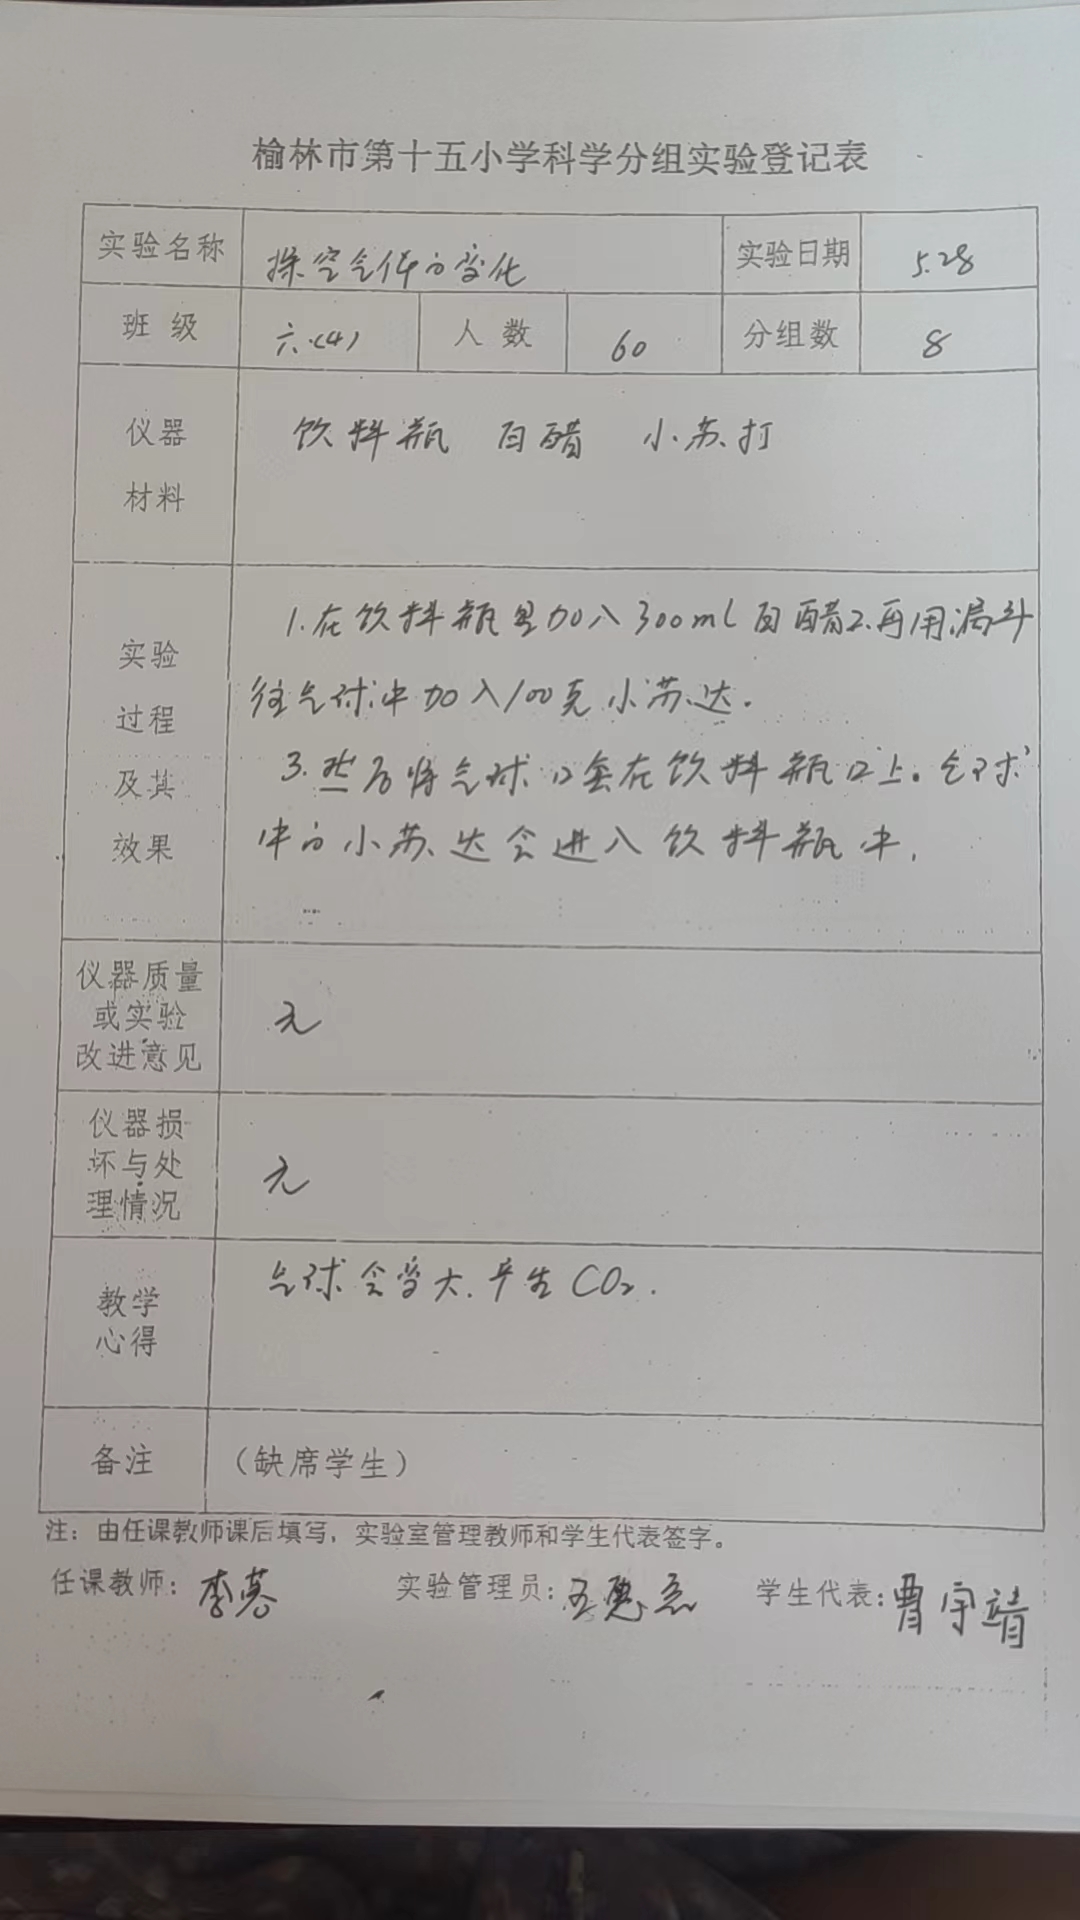 榆林市第十五小学科学分组实验登记表
实验名称 探空气体的变化 实验日期 5.28
班级 六.(4) 人数 60 分组数 8
仪器 饮料瓶 白醋 小苏打
材料
1.在饮料瓶里加入300ml白醋2.再用漏斗
实验
往气球中加入100克小苏达.
过程
3.然后将气球口套在饮料瓶口上。气球
及其
中的小苏达会进入饮料瓶中.
效果
仪器质量
或实验 无
改进意见
仪器损
坏与处 无
理情况
气球会变大.产生CO₂.
教学
心得
备注 (缺席学生)
注：由任课教师课后填写，实验室管理教师和学生代表签字。
任课教师： 实验管理员： 学生代表：曹宇靖